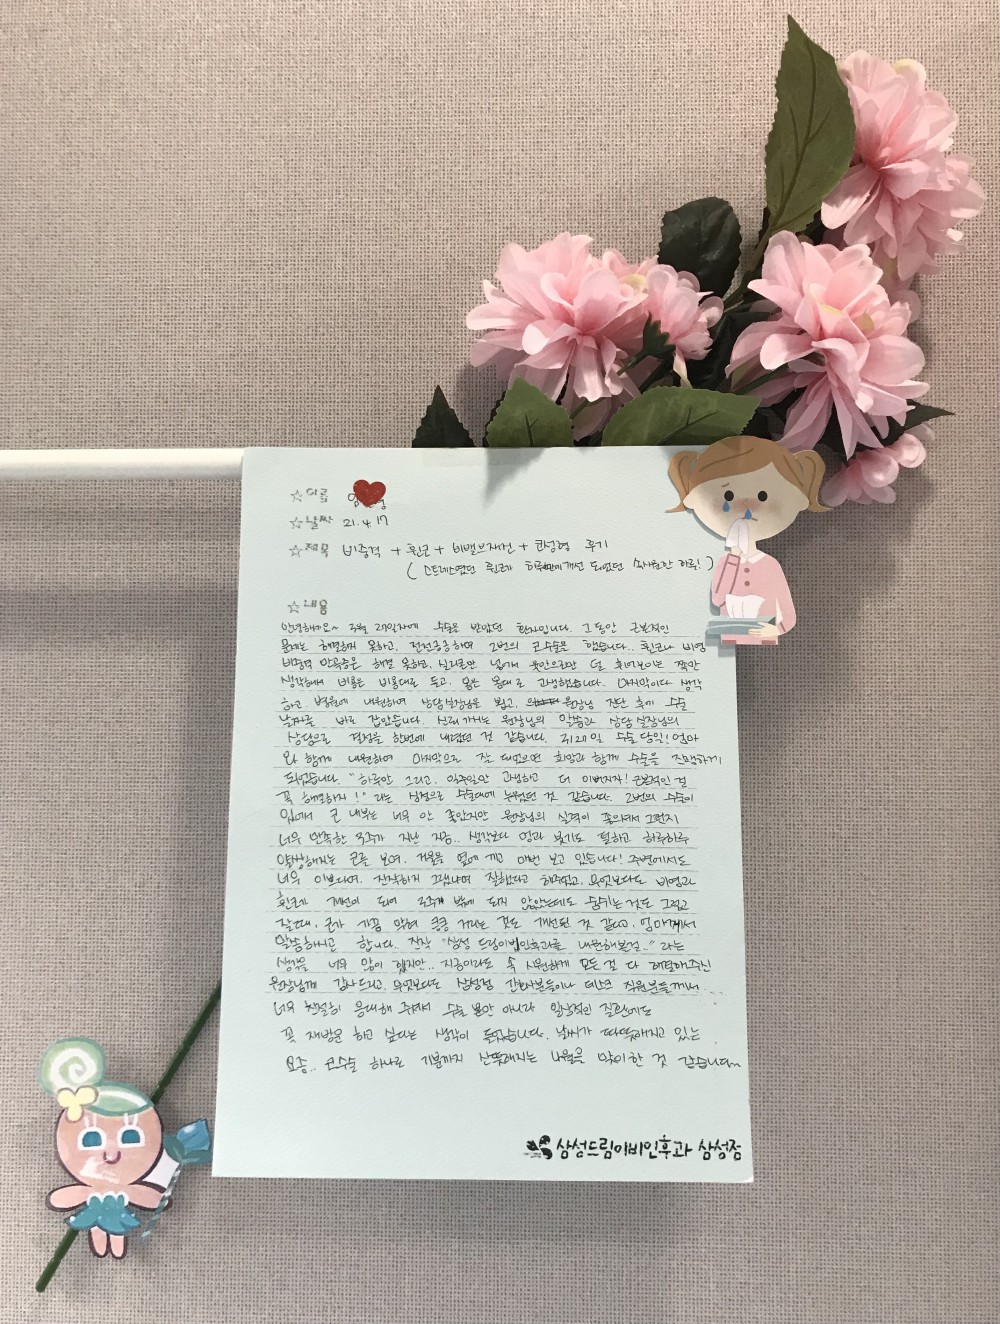 ☆이름 임 영
☆날짜 21. 4. 17
☆제목 비중격 + 휜코 + 비밸브재건 + 코성형 후기
( 스트레스였던 휜코가 하루만에 개선 되었던 속시원한 하루! )
☆내용
안녕하세요~ 3월 20일자에 수술을 받았던 환자입니다. 그 동안 근본적인
문제는 해결하지 못하고, 전전긍긍하며 2번의 코수술을 했습니다.. 휜코나 비염
비중격 만곡증은 해결 못하고, 실리콘만 넣게 육안으로만 덜 휘어보이는 쪽만
생각해서 비용은 비용대로 들고, 몸은 몸대로 고생했습니다. 마지막이다 생각
하고 병원에 내원하여 상담실장님을 뵙고, 원장님 진단 후에 수술
날짜를 바로 잡았습니다. 신뢰 가는 원장님의 말씀과 상담 실장님의
상담으로 결정을 한번에 내렸던 것 같습니다. 3월 20일 수술 당일! 엄마
와 함께 내원하여 마지막으로 잘 되었으면 희망과 함께 수술을 진행하게
되었습니다. "하루만 그리고, 일주일만 고생하고 더 이뻐지자! 근본적인 걸
꼭 해결하자!" 라는 심정으로 수술대에 누웠던 것 같습니다. 2번의 수술이
있어서 코 내부는 너무 안 좋았지만 원장님의 실력이 좋으셔서 그런지
너무 만족한 4주가 지난 지금.. 생각보다 멍과 붓기도 덜하고 하루하루
얄쌍해지는 코를 보며, 거울을 옆에 끼고 매번 보고 있습니다! 주변에서도
너무 이쁘다며, 진작하지 그랬냐며 잘했다고 해주었고, 무엇보다도 비염과
휜코가 개선이 되어 4주 밖에 되지 않았는데도 숨쉬는 것도 그렇고
잘때, 코가 가끔 막혀 킁킁 거리는 것도 개선된 것 같다고, 엄마께서
말씀하시곤 합니다.. 진작 "삼성 드림이비인후과를 내원해볼걸.." 라는
생각을 너무 많이 했지만.. 지금이라도 속 시원하게 모든 걸 다 해결해주신
원장님께 감사드리고, 무엇보다도 삼성점 간호사분들이나 데스크 직원분들께서
너무 친절히 응대해 주셔서 수술 뿐만 아니라 일상적인 질환에도
꼭 재방문 하고 싶다는 생각이 들었습니다. 날씨가 따뜻해지고 있는
요즘.. 코수술 하나로 기분까지 산뜻해지는 4월을 맞이한 것 같습니다~
삼성드림이비인후과 삼성점